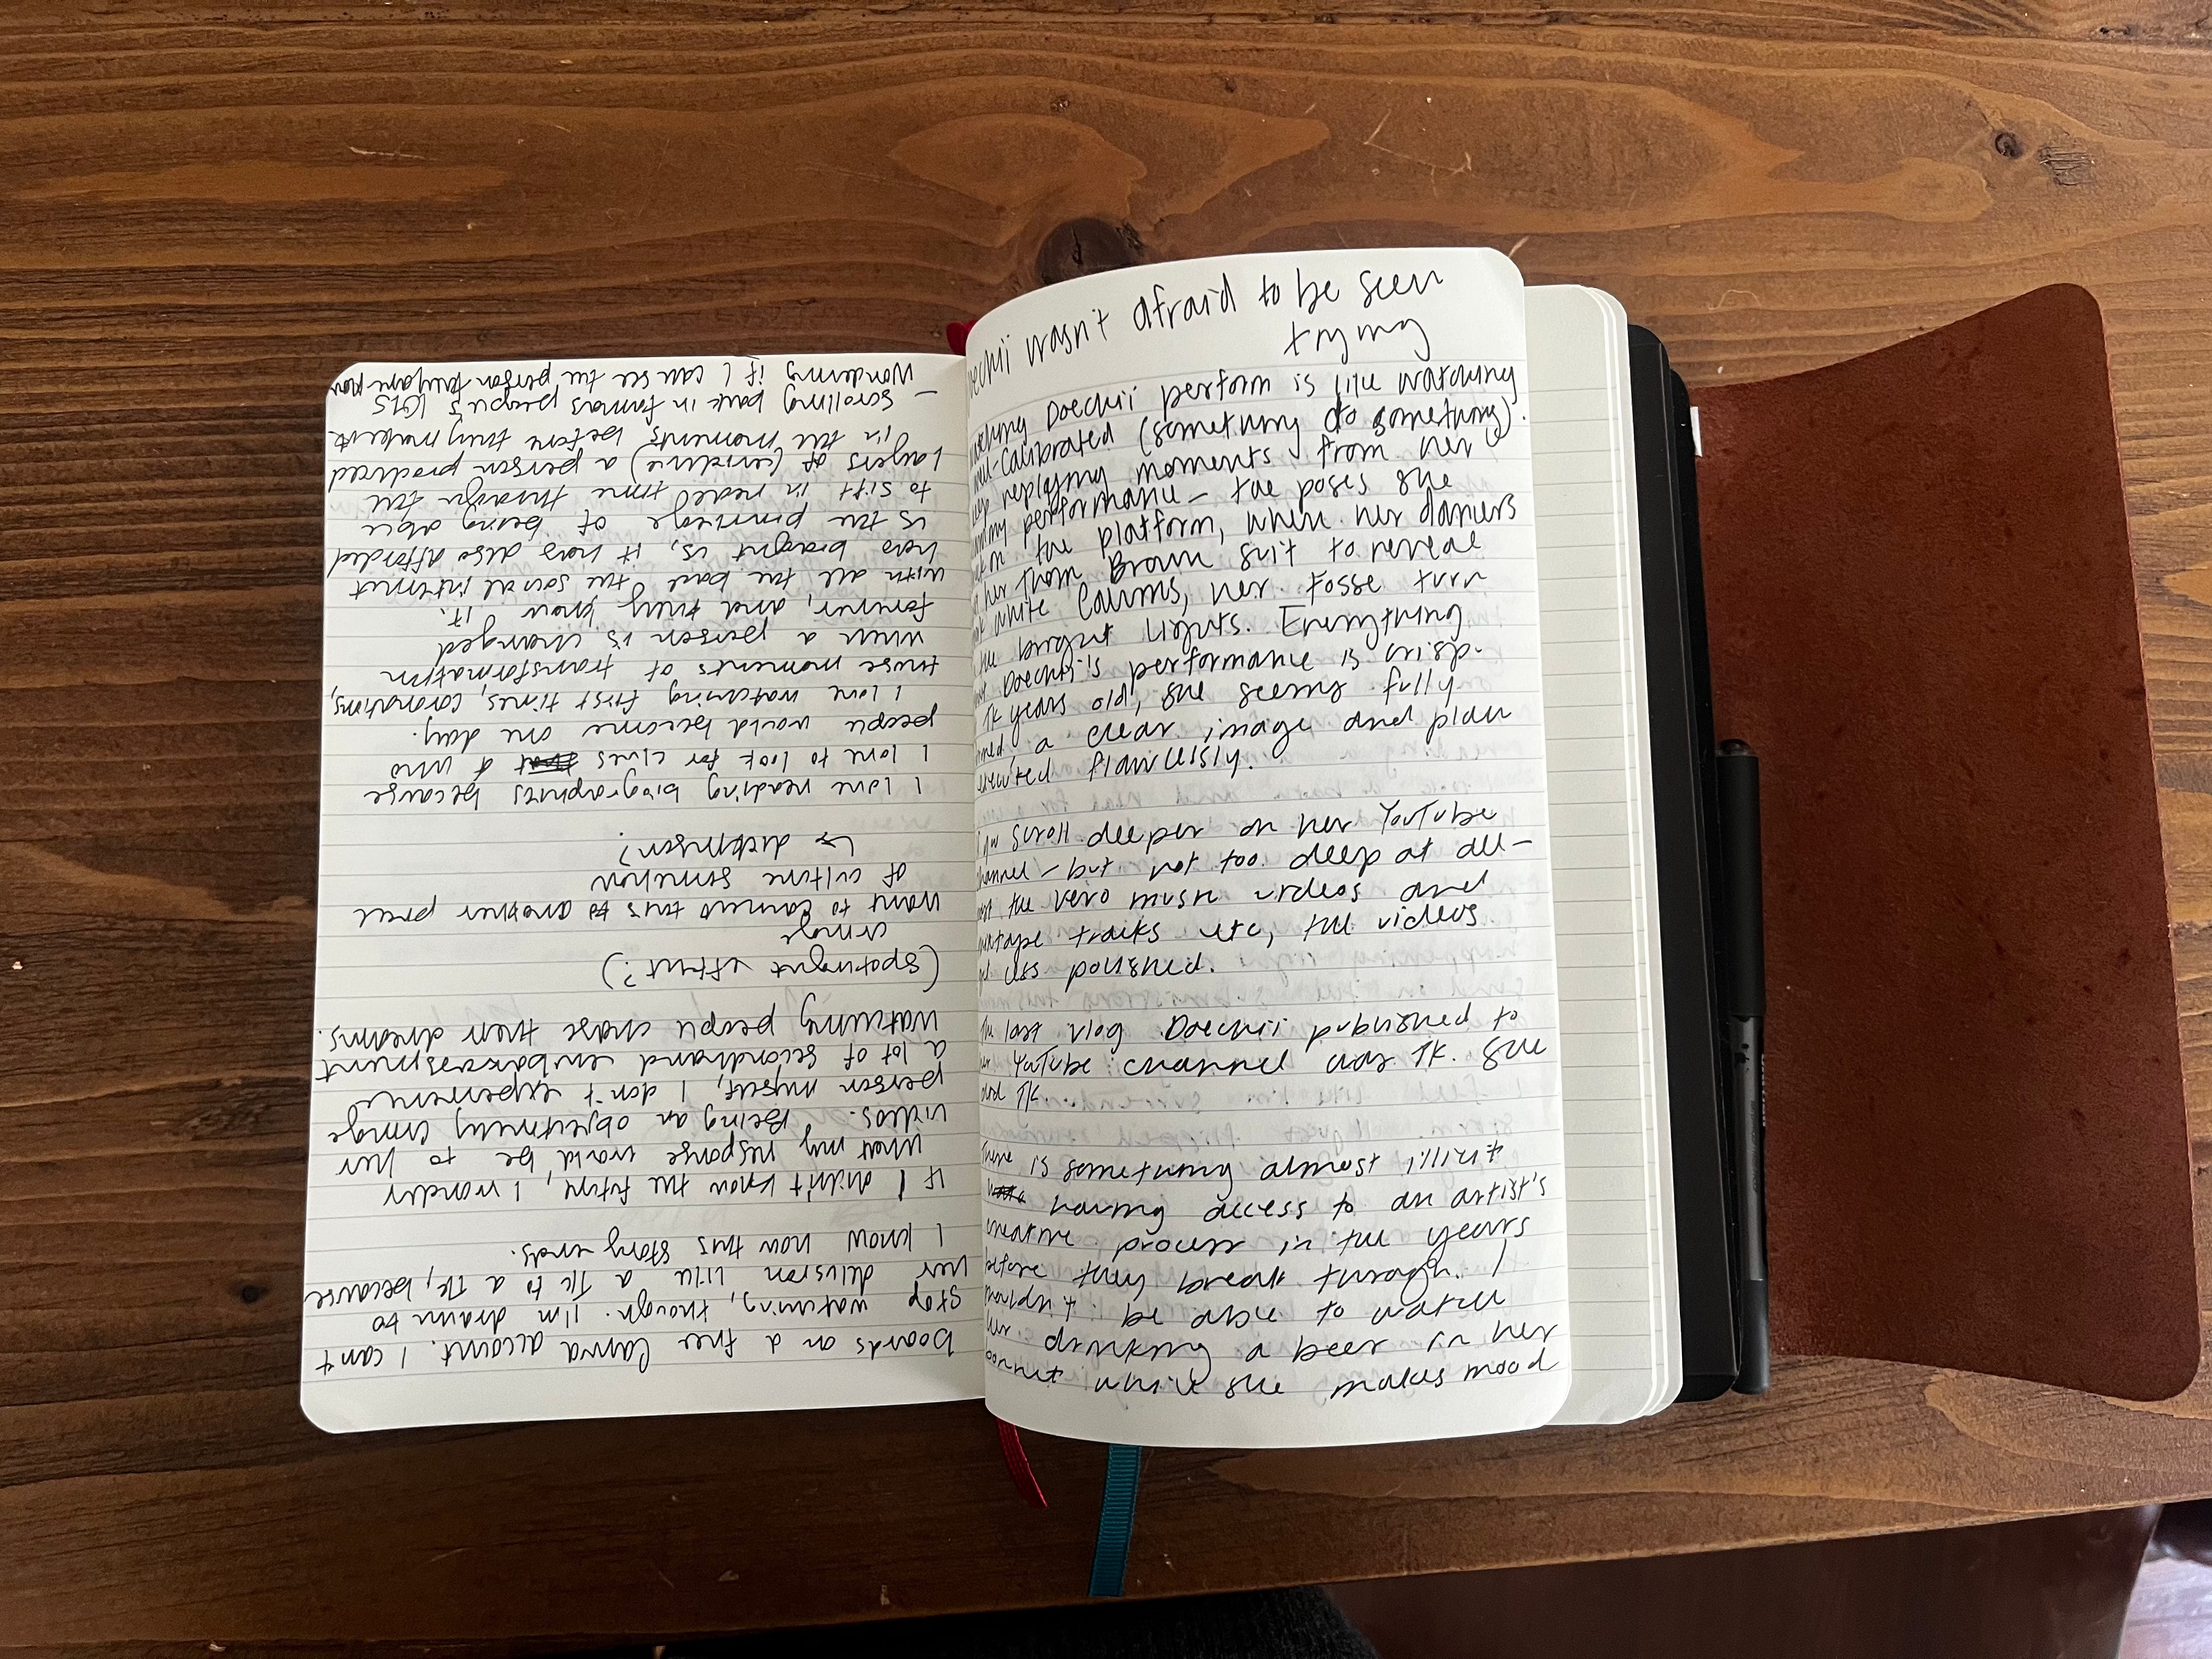 Doechii wasn't afraid to be seen
trying
watching Doechii perform is like watching
well-calibrated (something do something).
keep replaying moments from her
performance — the poses she
on the platform, when her dancers
her Thom Brown suit to reveal
white Calvins, her Fosse turn
the bright lights. Everything
Doechii's performance is crisp.
TK years old, she seems fully
a clear image and plan
executed flawlessly.
scroll deeper on her YouTube
channel — but not too deep at all —
the Vevo music videos and
mixtape tracks etc, the videos
less polished.
The last vlog Doechii published to
her YouTube channel was TK. She
TK.
There is something almost illicit
having access to an artist's
creative process in the years
before they break through. I
shouldn't be able to watch
her drinking a beer in her
bonnet while she makes mood
boards on a free Canva account. I can't
stop watching, though. I'm drawn to
her delusion like a TK to a TK, because
I know how this story ends.
If I didn't know the future, I wonder
what my response would be to her
videos. Being an objectively cringe
person myself, I don't experience
a lot of secondhand embarrassment
watching people chase their dreams.
(spotlight effect?)
cringe
want to connect this to another piece
of culture somehow
↳ dickinson?
I love reading biographies because
I love to look for clues of who
people would become one day.
I love watching first times, coronations,
those moments of transformation
when a person is changed
forever, and they know it.
with all the bad the social internet
has brought us, it has also afforded
us the privilege of being able
to sift in real time through the
layers of (evidence) a person produced
in the moments before they made it.
— scrolling back in famous people's IGs
wondering if I can see the person they are now